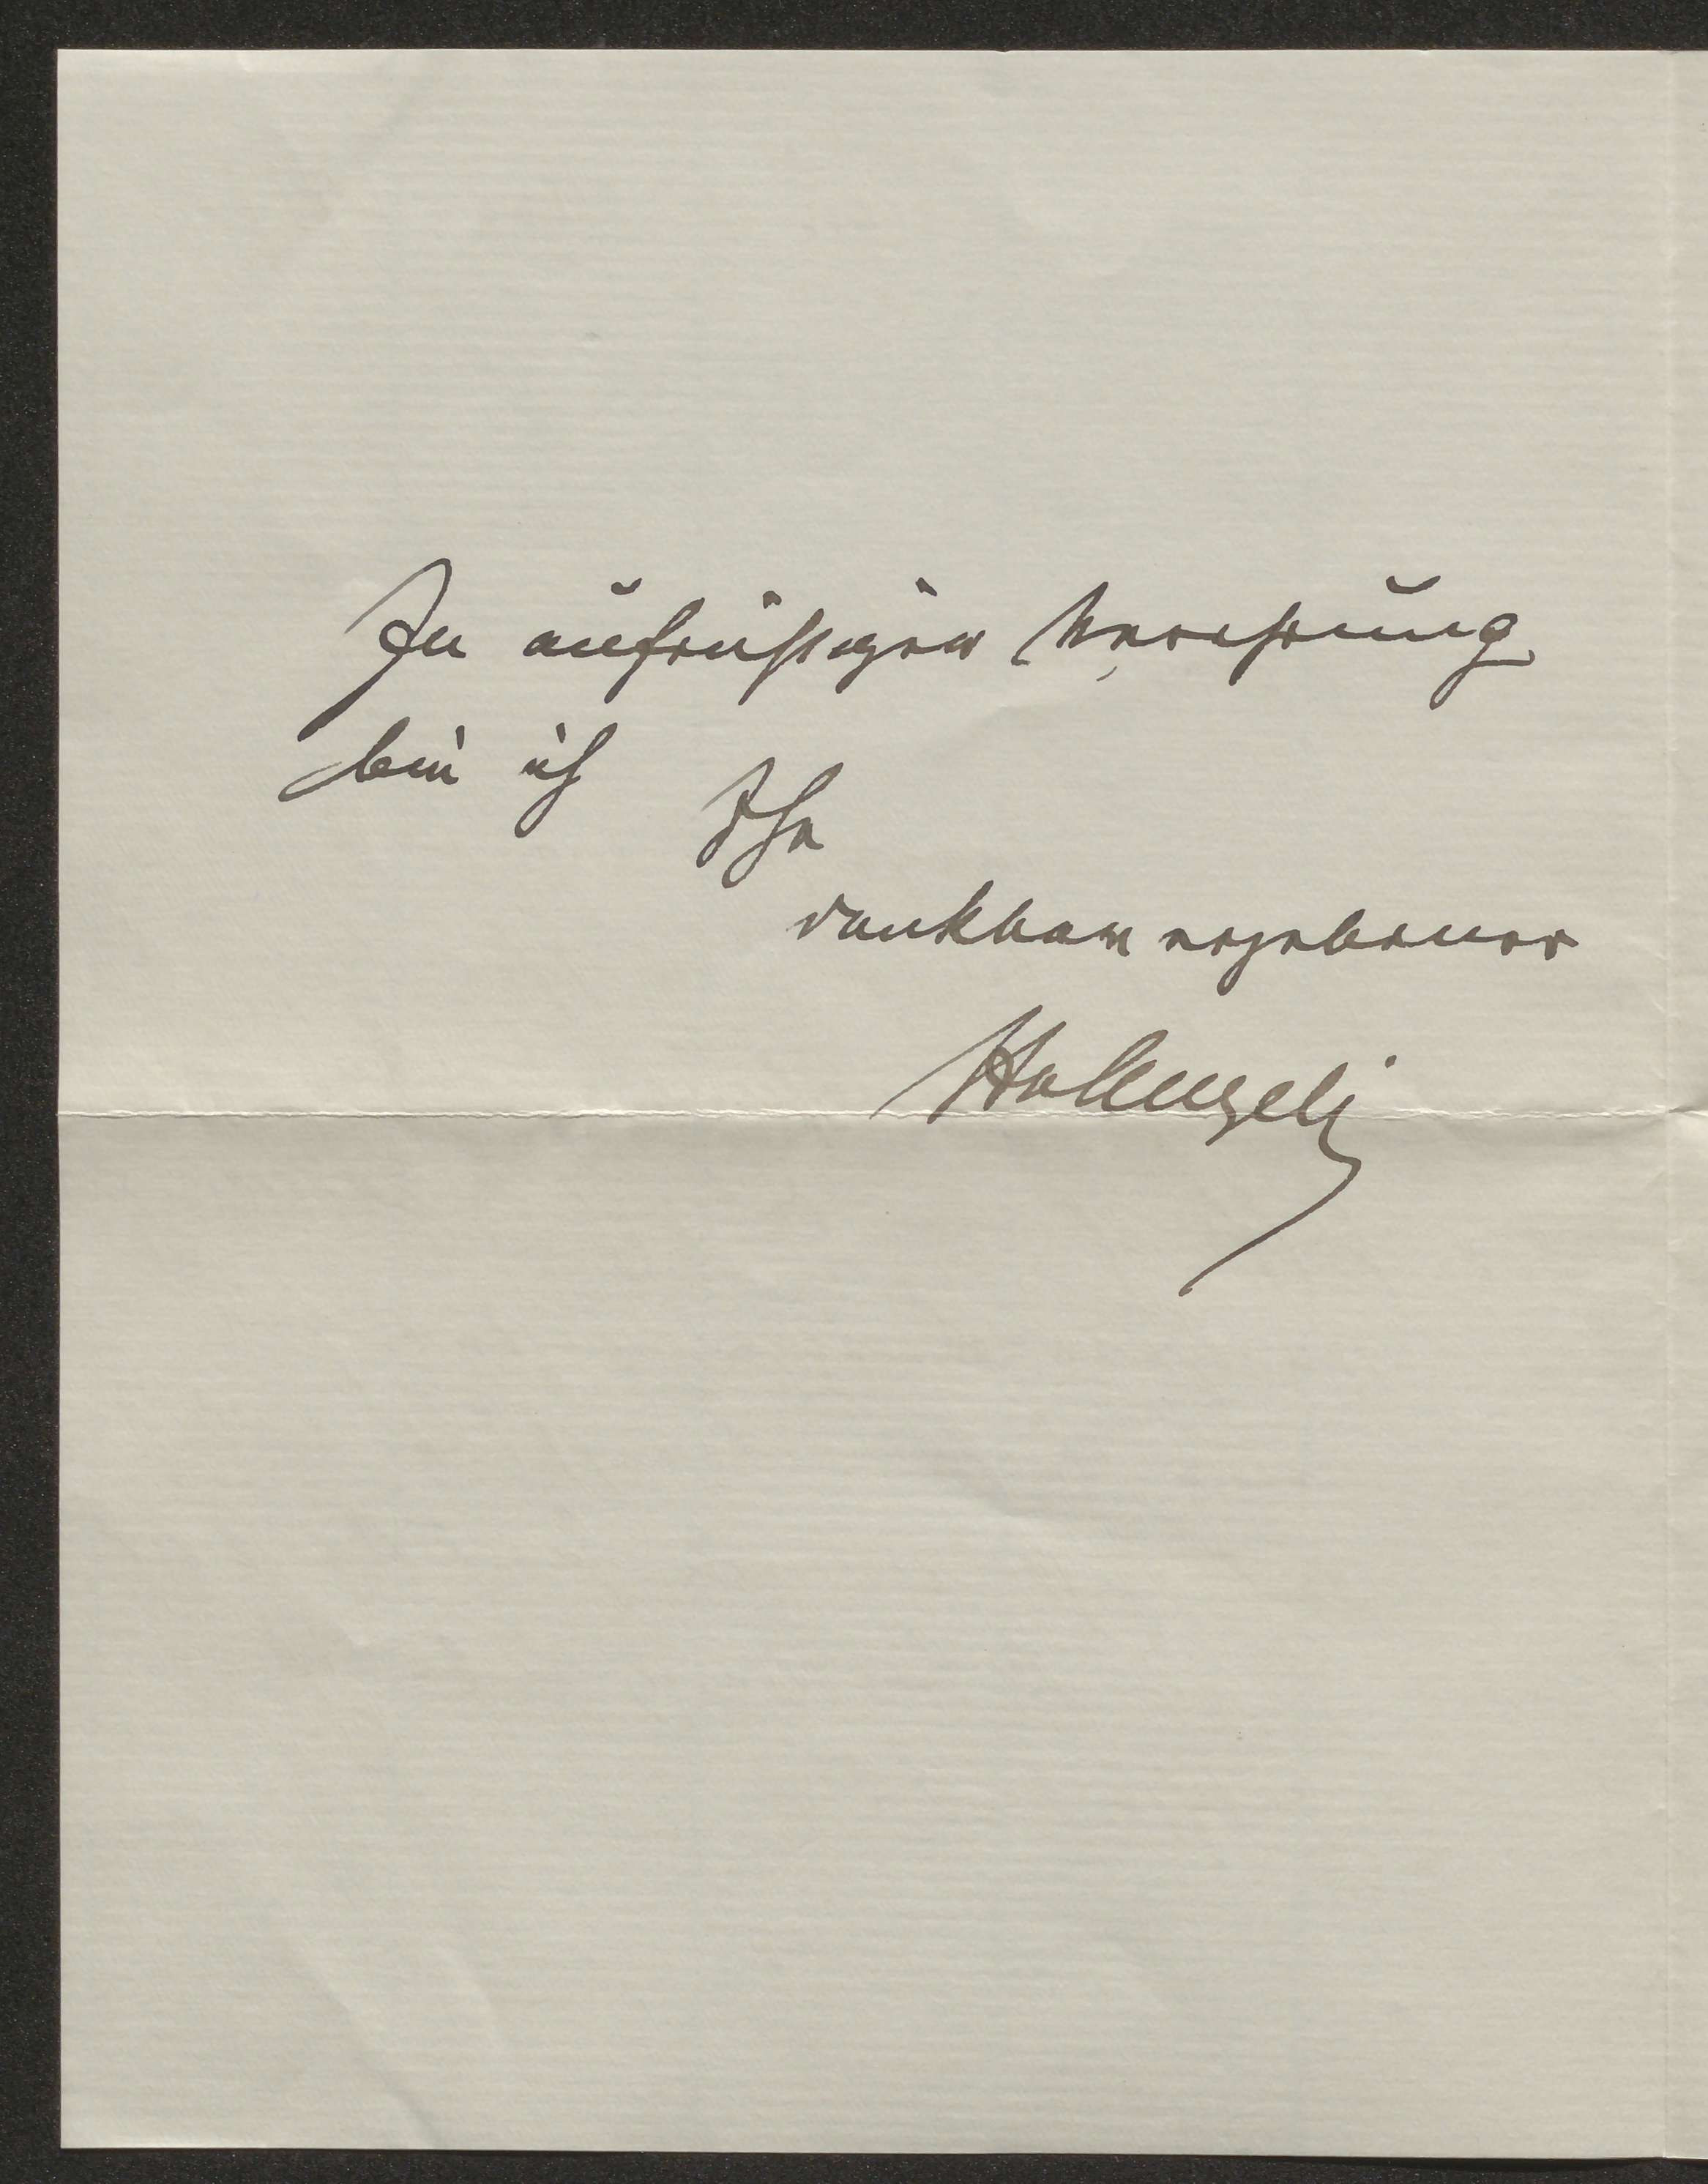 In aufrichtiger Verehrung
bin ich
Ihr
dankbar ergebener